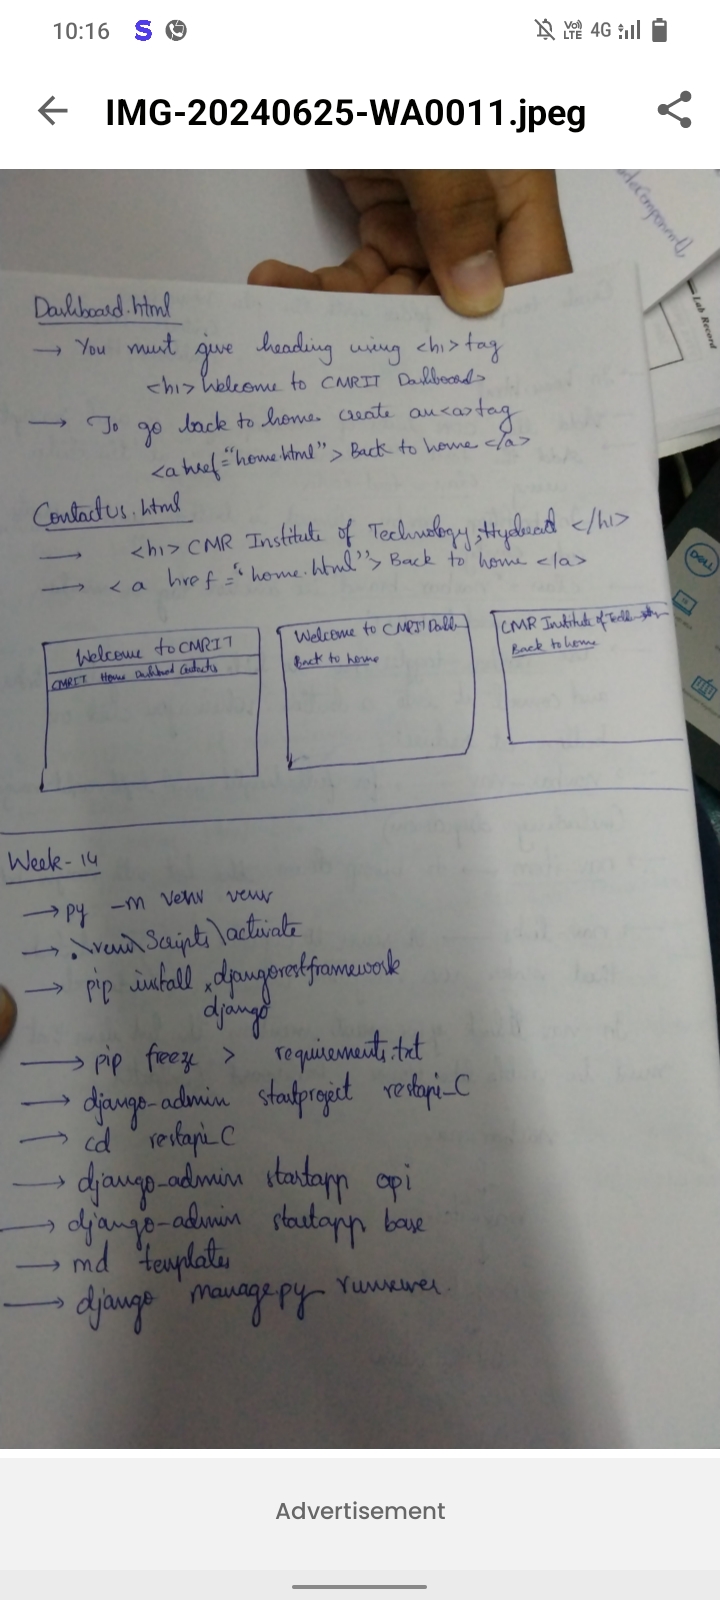 10:16 S Vo) LTE 4G
IMG-20240625-WA0011.jpeg
Lab Record
Dashboard.html
→ You must give heading using <h1> tag
<h1> Welcome to CMRIT Dashboard>
→ To go back to home create an <a> tag
<a href="home.html"> Back to home </a>
Contactus.html
→ <h1> CMR Institute of Technology, Hydbead </h1>
→ <a href="home.html"> Back to home </a>
Welcome to CMRIT
CMRIT Home Dashboard Contactus
Welcome to CMRIT Dash
Back to home
CMR Institute of
Back to home
DELL
Week-14
→ py -m venv venv
→ .\venv\Scripts\activate
→ pip install djangorestframework
django
→ pip freeze > requirements.txt
→ django-admin startproject restapi_C
→ cd restapi_C
→ django-admin startapp api
→ django-admin startapp base
→ md templates
→ django manage.py runserver.
Advertisement